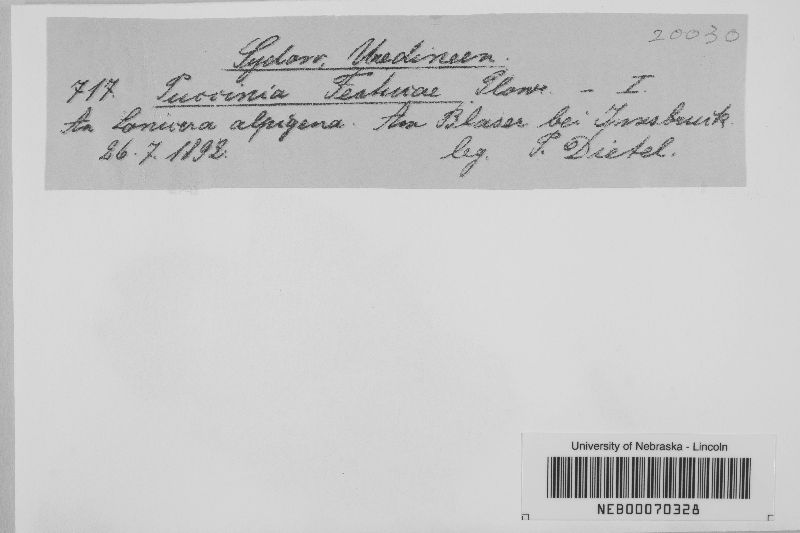 20030
Sydow, Uredineen.
717. Puccinia Festucae Plowr. - I.
An Lonicera alpigena. Am Blaser bei Innsbruck.
26.7.1892. leg. P. Dietel.
University of Nebraska - Lincoln
NEB00070328